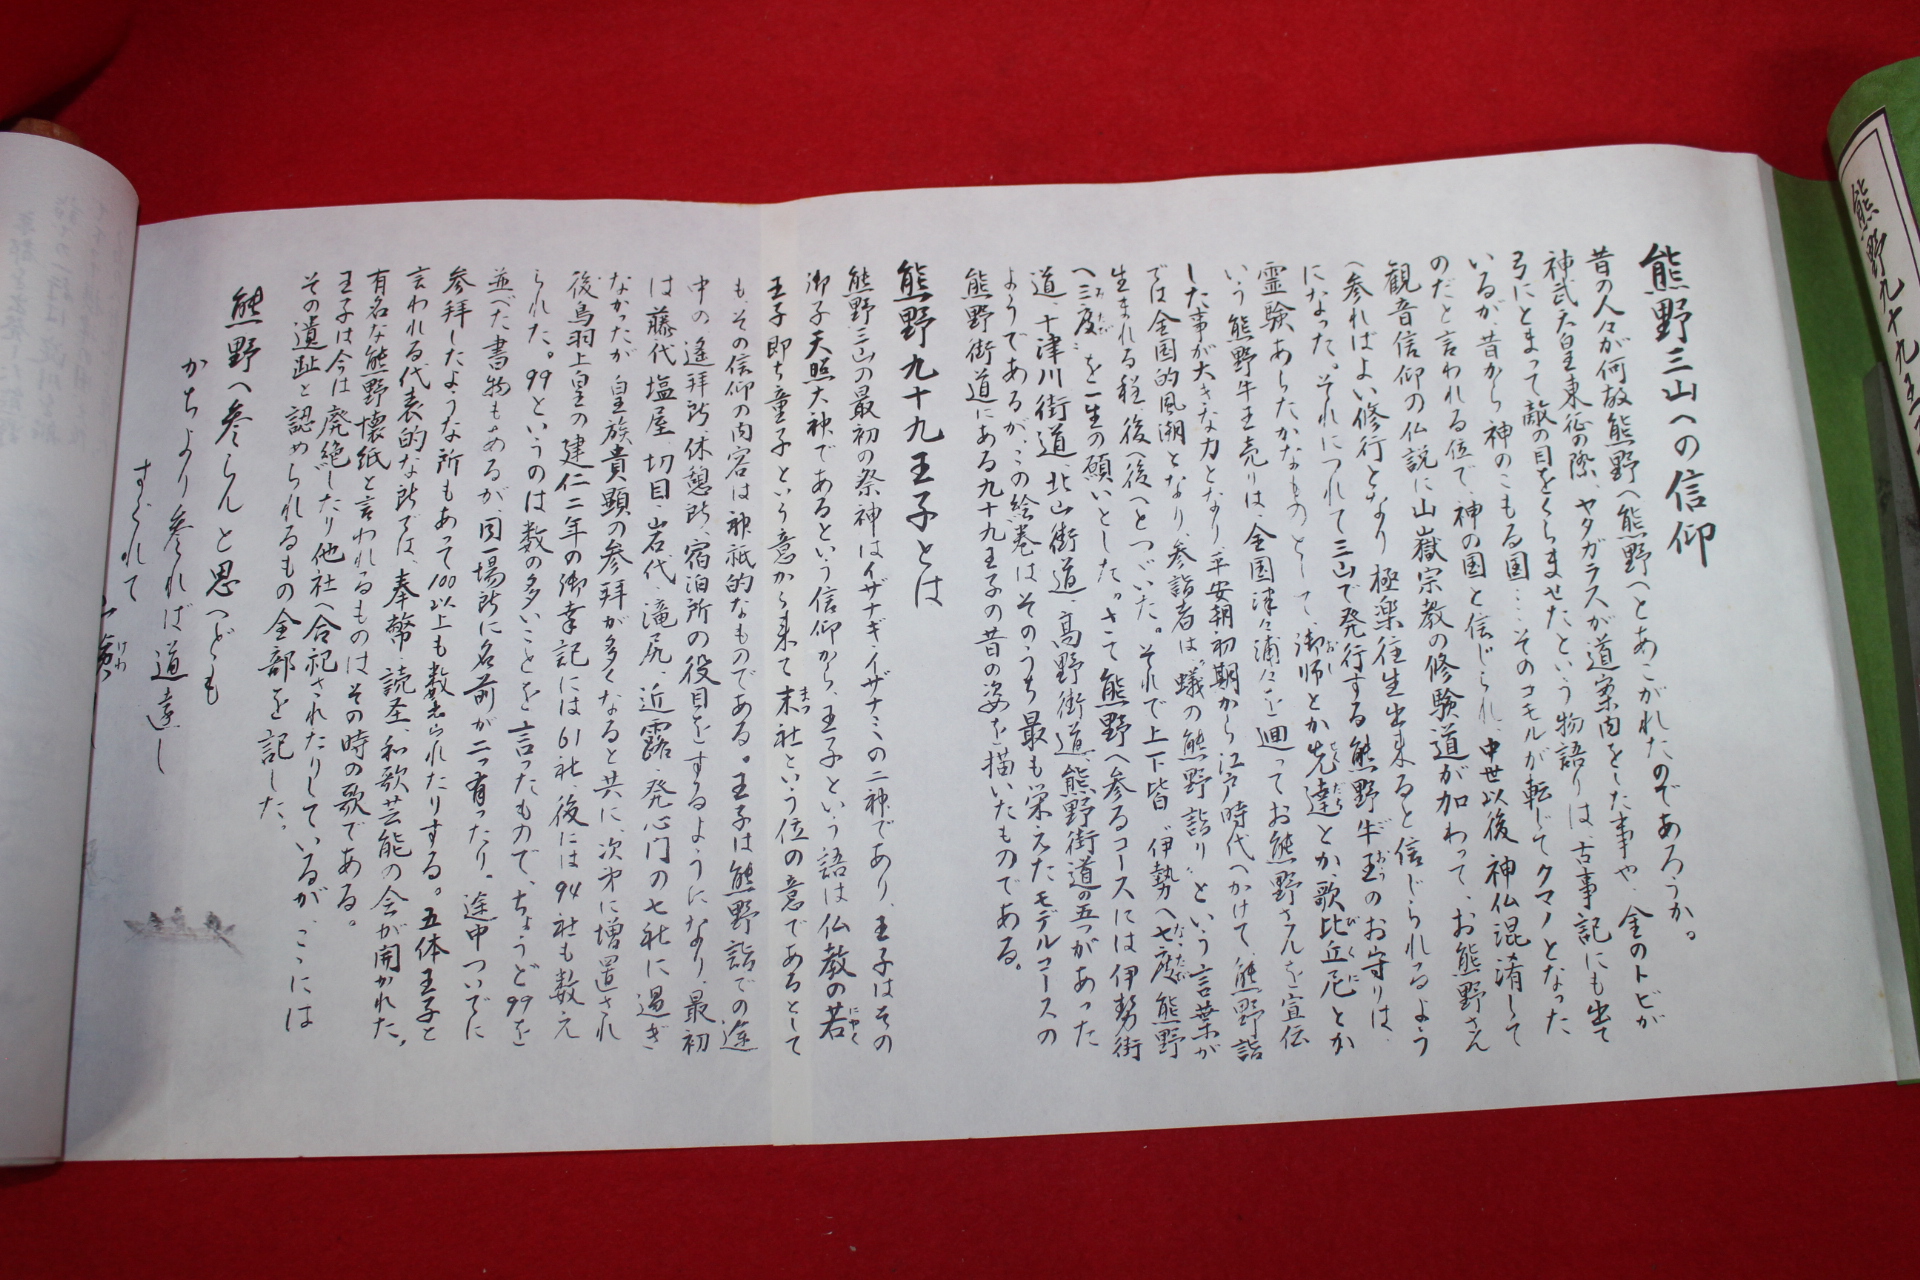 熊野九十九王
熊野三山への信仰
昔の人々が何故熊野へ熊野へとあこがれたのであろうか。
神武天皇東征の際、ヤタガラスが道案内をした事や、金のトビが
弓にとまって敵の目をくらませたという物語りは、古事記にも出て
いるが、昔から神のこもる国…そのコモルが転じてクマノとなった
のだと言われる位で、神の国と信じられ、中世以後神仏混淆して
観音信仰の仏説に山嶽宗教の修験道が加わって、お熊野さん
へ参ればよい修行となり極楽往生出来ると信じられるよう
になった。それにつれて三山で発行する熊野牛王のお守りは、
霊験あらたかなものとして、御師とか先達とか、歌比丘尼とか
いう熊野牛王売りは、全国津々浦々を廻ってお熊野さんを宣伝
した事が大きな力となり平安朝初期から江戸時代へかけて、熊野詣
では全国的風潮となり、参詣者は〝蟻の熊野詣り〟という言葉が
生まれる程、後へ後へとつゞいた。それで上下皆〝伊勢へ七度熊野
へ三度〟を一生の願いとした。さて熊野へ参るコースには伊勢街
道、十津川街道、北山街道、高野街道、熊野街道の五つがあった
ようであるが、この絵巻はそのうち最も栄えたモデルコースの
熊野街道にある九十九王子の昔の姿を描いたものである。
熊野九十九王子とは
熊野三山の最初の祭神はイザナギ・イザナミの二神であり、王子はその
御子天照大神であるという信仰から、王子という語は仏教の若
王子即ち童子という意から来て末社という位の意であるとして
も、その信仰の内容は神祇的なものである。王子は熊野詣での途
中の遙拝所、休憩所、宿泊所の役目をするようになり、最初
は藤代、塩屋、切目、岩代、滝尻、近露、発心門の七社に過ぎ
なかったが、皇族貴顕の参拝が多くなると共に、次第に増置され
後鳥羽上皇の建仁二年の御幸記には61社、後には94社も数え
られた。99というのは数の多いことを言ったもので、ちょうど99を
並べた書物もあるが、同一場所に名前が二つ有ったり。途中ついでに
参拝したような所もあって100以上も数えられたりする。五体王子と
言われる代表的な所では、奉幣、読圣、和歌芸能の会が開かれた、
有名な熊野懐紙と言われるものはその時の歌である。
王子は今は廃絶したり他社へ合祀されたりしているが、ここには
その遺趾と認められるもの全部を記した。
熊野へ参らんと思へども
かちより参れば道遠し
すぐれて